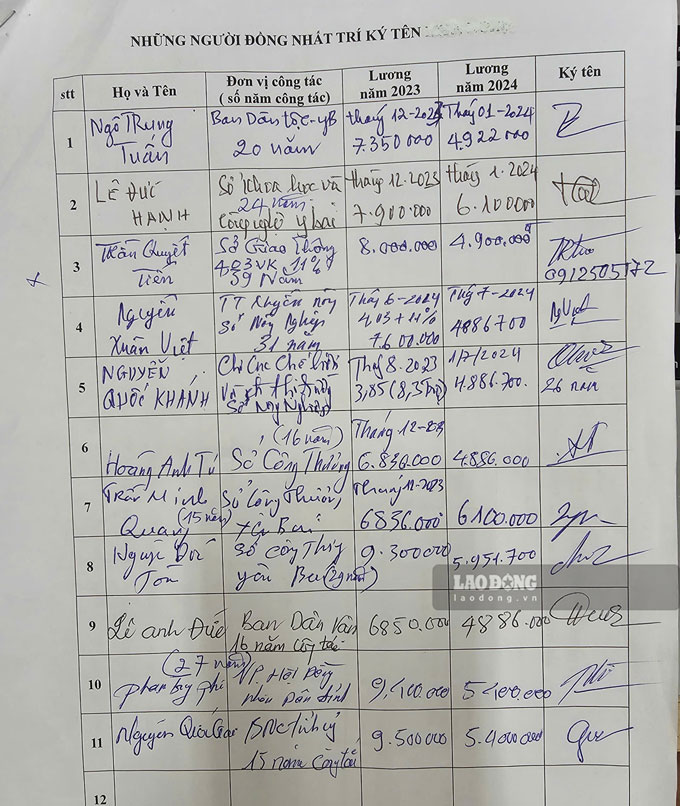 NHỮNG NGƯỜI ĐỒNG NHẤT TRÍ KÝ TÊN
stt
Họ và Tên
Đơn vị công tác
( số năm công tác)
Lương
năm 2023
Lương
năm 2024
Ký tên
1
Ngô Trung
Tuấn
Ban Dân tộc-YB
20 năm
tháng 12-2023
7.350.000
Tháng 01-2024
4.922.000
2
LÊ ĐỨC
HẠNH
Sở Khoa học và
24 năm
Công nghệ Y bái
tháng 12.2023
7.900.000
tháng 1.2024
6.100000
3
Trần Quyết
Tiến
Sở Giao thông
4,03 VK 11%
39 Năm
8.000.000
4.900.000đ
0912505172
4
Nguyễn
Xuân Việt
TT Khuyến nông
Sở Nông Nghiệp
31 năm
Tháng 6-2024
4,03 + 11%
7.600.000
Tháng 7-2024
4886700
5
NGUYỄN
QUỐC KHÁNH
Chi Cục Chế biến
Sở Nông Nghiệp
Tháng 8.2023
3,85 (8,3
1/7/2024
4.886.700.
26 năm
6
Hoàng Anh Tú
(16 năm)
Sở Công Thương
Tháng 12-2023
6.836.000
4.886.000
7
Trần Minh
Quang (15 năm)
Sở Công Thương
Yên Bái
Tháng 12-2023
6836.000
6100.000
8
Sở Công Thương
Yên Bái
9.300000
5.951.700
LAO ĐỘNG
laodong.vn
9
Lê Anh Đức
Ban Dân Vận
16 năm công tác
6850.000
4886.000
10
(27 năm)
VP. Hội Đồng
nhân dân tỉnh
9,400.000
5400.000
11
Nguyễn Quốc
BNC tỉnh ủy
15 năm công tác
9.500000
5.400000
12